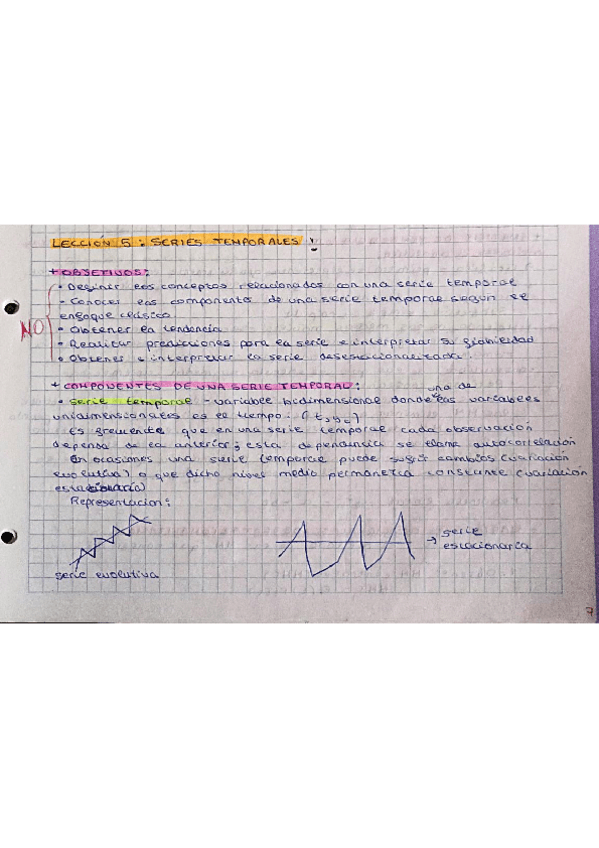 LECCIÓN 5: SERIES TEMPORALES !
+ OBJETIVOS:
• Definir los conceptos relacionados con una serie temporal
- Conocer los componentes de una serie temporal según el
enfoque clásico.
• Obtener la tendencia
• Realizar predicciones para la serie e interpretar su fiabilidad
• Obtener e interpretar la serie desestacionalizada.
NO
+ COMPONENTES DE UNA SERIE TEMPORAL:
una de
• serie temporal - variable bidimensional donde las variables
unidimensionales es el tiempo: (t, yt)
Es frecuente que en una serie temporal cada observación
dependa de la anterior; esta dependencia se llama autocorrelación
En ocasiones una serie temporal puede sufrir cambios (variación
evolutiva) o que dicho nivel medio permanezca constante (variación
estacionaria)
Representación:
serie evolutiva
→ serie
estacionaria
7